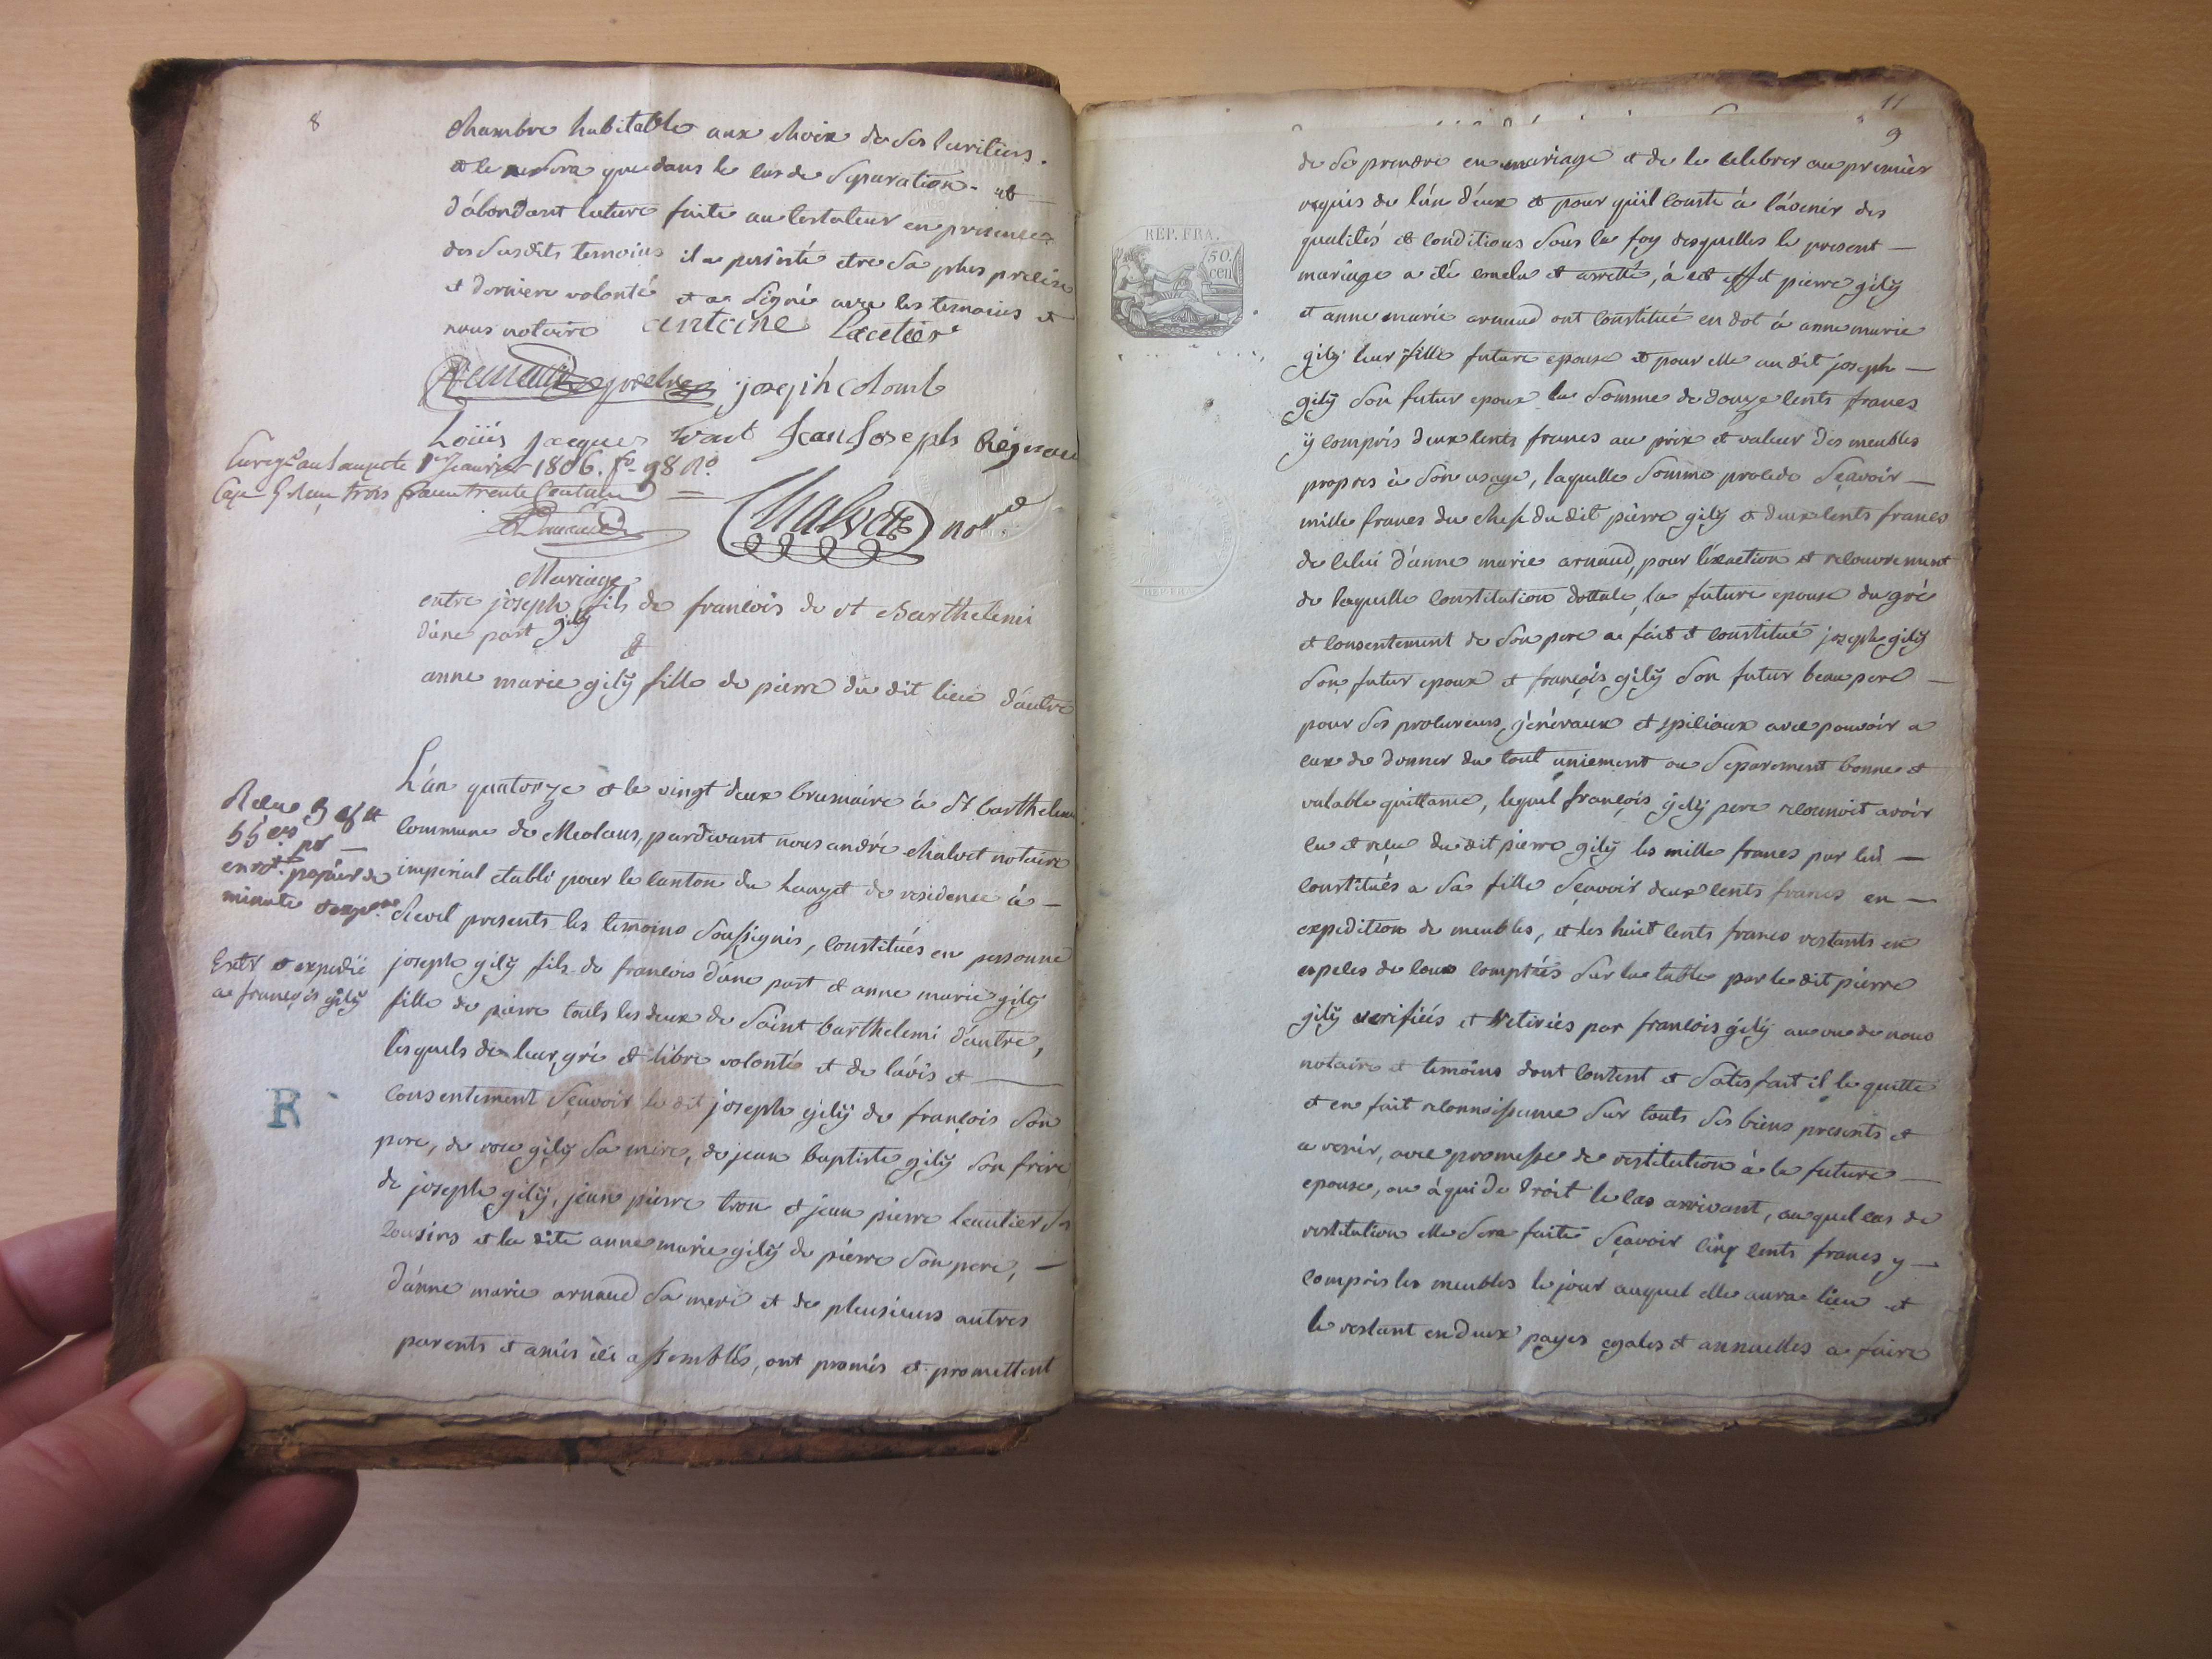 8
chambre habitable aux choix de ses heritiers.
et le
que dans le cas de Separation.
d'abondant lecture faite au testateur en presence
des Susdits temoins il a persisté etre Sa plus precise
et derniere volonté et a Signé avec les temoins et
nous notaire antoine Lacetier
joseph colomb
Loüis Jacques Jean Joseph Regnau
1er Janvier 1806. fo 98 Ro
trois francs trente Centimes
Chalvet nore
Mariage
entre joseph gilÿ fils de francois de st Barthelemi
d'une part
&
anne marie gilÿ fille de pierre du dit lieu d'autre
L'an quatorze et le vingt deux brumaire à St barthelemi
commune de Meolans, pardevant nous andré chalvet notaire
imperial etabli pour le canton du lauzet de residence à —
revel presents les temoins Soussignés, constitués en personne
joseph gilÿ fils de francois d'une part et anne marie gilÿ
fille de pierre touts les deux de Saint barthelemi d'autre,
lesquels de leur gré et libre volonté et de l'avis et —
consentement Sçavoir le dit joseph gilÿ de françois Son
pere, de rose gilÿ Sa mere, de jean baptiste gilÿ Son frere
de joseph gilÿ, jean pierre tron et jean pierre leautier Ses
Cousins et la dite anne marie gilÿ de pierre Son pere, —
d'anne marie arnaud Sa mere et de plusieurs autres
parents et amis ici assemblés, ont promis et promettent
papier de
minute
Extr et expedié
a françois gilÿ
R
11
9
REP. FRA.
50.
cen
de Se prendre en mariage et de le celebrer au premier
requis de l'un d'eux et pour qu'il conste à l'avenir des
qualités et conditions Sous la foy desquelles le present —
mariage a été conclu et arretté, à cet effet pierre gilÿ
et anne marie arnaud ont constitué en dot à anne marie
gilÿ leur fille future epouse et pour elle au dit joseph —
gilÿ Son futur epoux la Somme de douze cents francs
ÿ compris deux cents francs au prix et valeur des meubles
propres à Son usage, laquelle Somme procede Sçavoir —
mille francs du chef du dit pierre gilÿ et deux cents francs
de celui d'anne marie arnaud, pour l'exaction et recouvrement
de laquelle constitution dottale, la future epouse du gré
et consentement de Son pere a fait et constitué joseph gilÿ
Son futur epoux et françois gilÿ Son futur beau pere —
pour Ses procureurs généraux et speciaux avec pouvoir a
eux de donner du tout uniement ou Separement bonne et
valable quittance, lequel françois gilÿ pere reconnoit avoir
eu et reçu du dit pierre gilÿ les mille francs par lui —
constitués a Sa fille Sçavoir deux cents francs en —
expedition de meubles, et les huit cents francs restants en
especes de cours comptées Sur la table par le dit pierre
gilÿ verifiées et retirées par francois gilÿ au vu de nous
notaire et temoins dont content et Satisfait il le quitte
et en fait reconnoissance Sur touts Ses biens presents et
a venir, avec promesse de restitution à la future —
epouse, ou à qui de droit le cas arrivant, auquel cas de
restitution elle Sera faite Sçavoir cinq cents francs y —
compris les meubles le jour auquel elle aura lieu et
le restant en deux payes egales et annuelles a faire
REP FRA